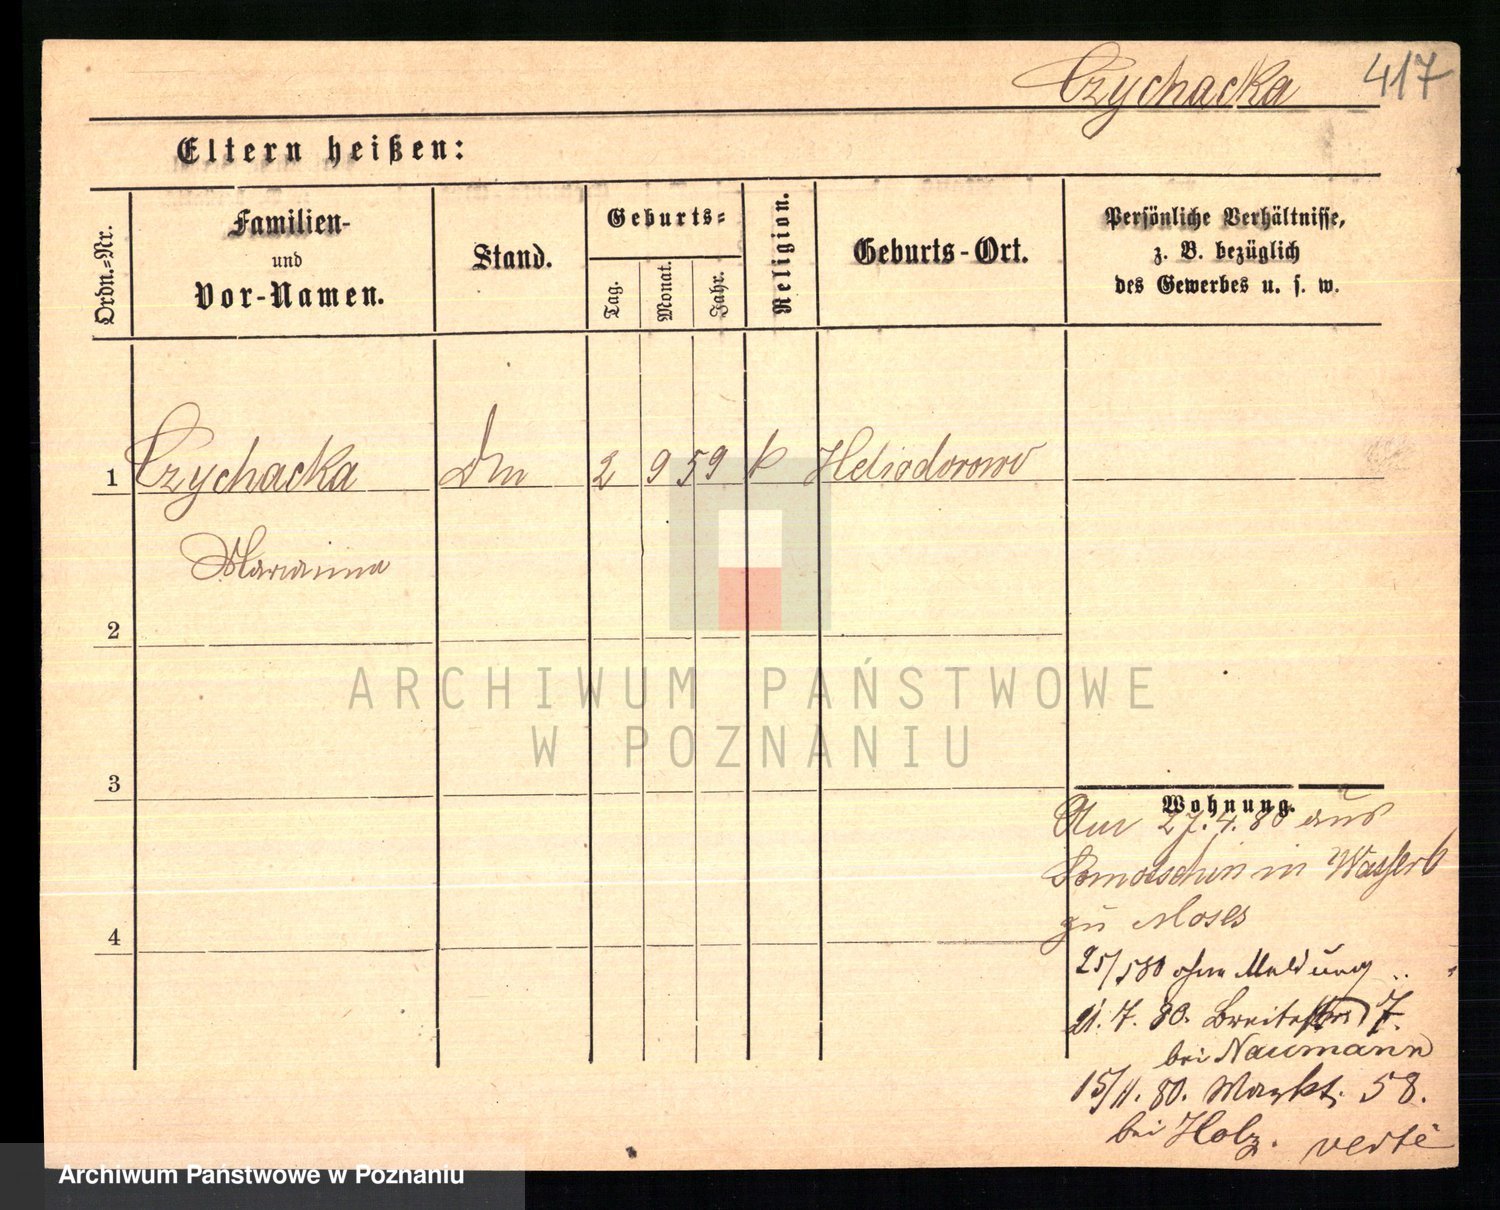 Czychacka 417
Eltern heißen:
Ordn.=Nr.
Familien-
und
Vor-Namen.
Stand.
Geburts=
Tag.
Monat.
Jahr.
Religion.
Geburts-Ort.
Persönliche Verhältnisse,
z. B. bezüglich
des Gewerbes u. s. w.
1 Czychacka Dm 2 9 59 k Heliodorowo
Marianna
2
3
4
Wohnung.
27.4.80 aus
Samotschin in Wasserb
zu Moses
25/5 80 ohne Meldung
21.7.80. Breitestr 7.
bei Naumann
15/11.80. Markt. 58.
bei Holz. verte
ARCHIWUM PAŃSTWOWE
W POZNANIU
Archiwum Państwowe w Poznaniu